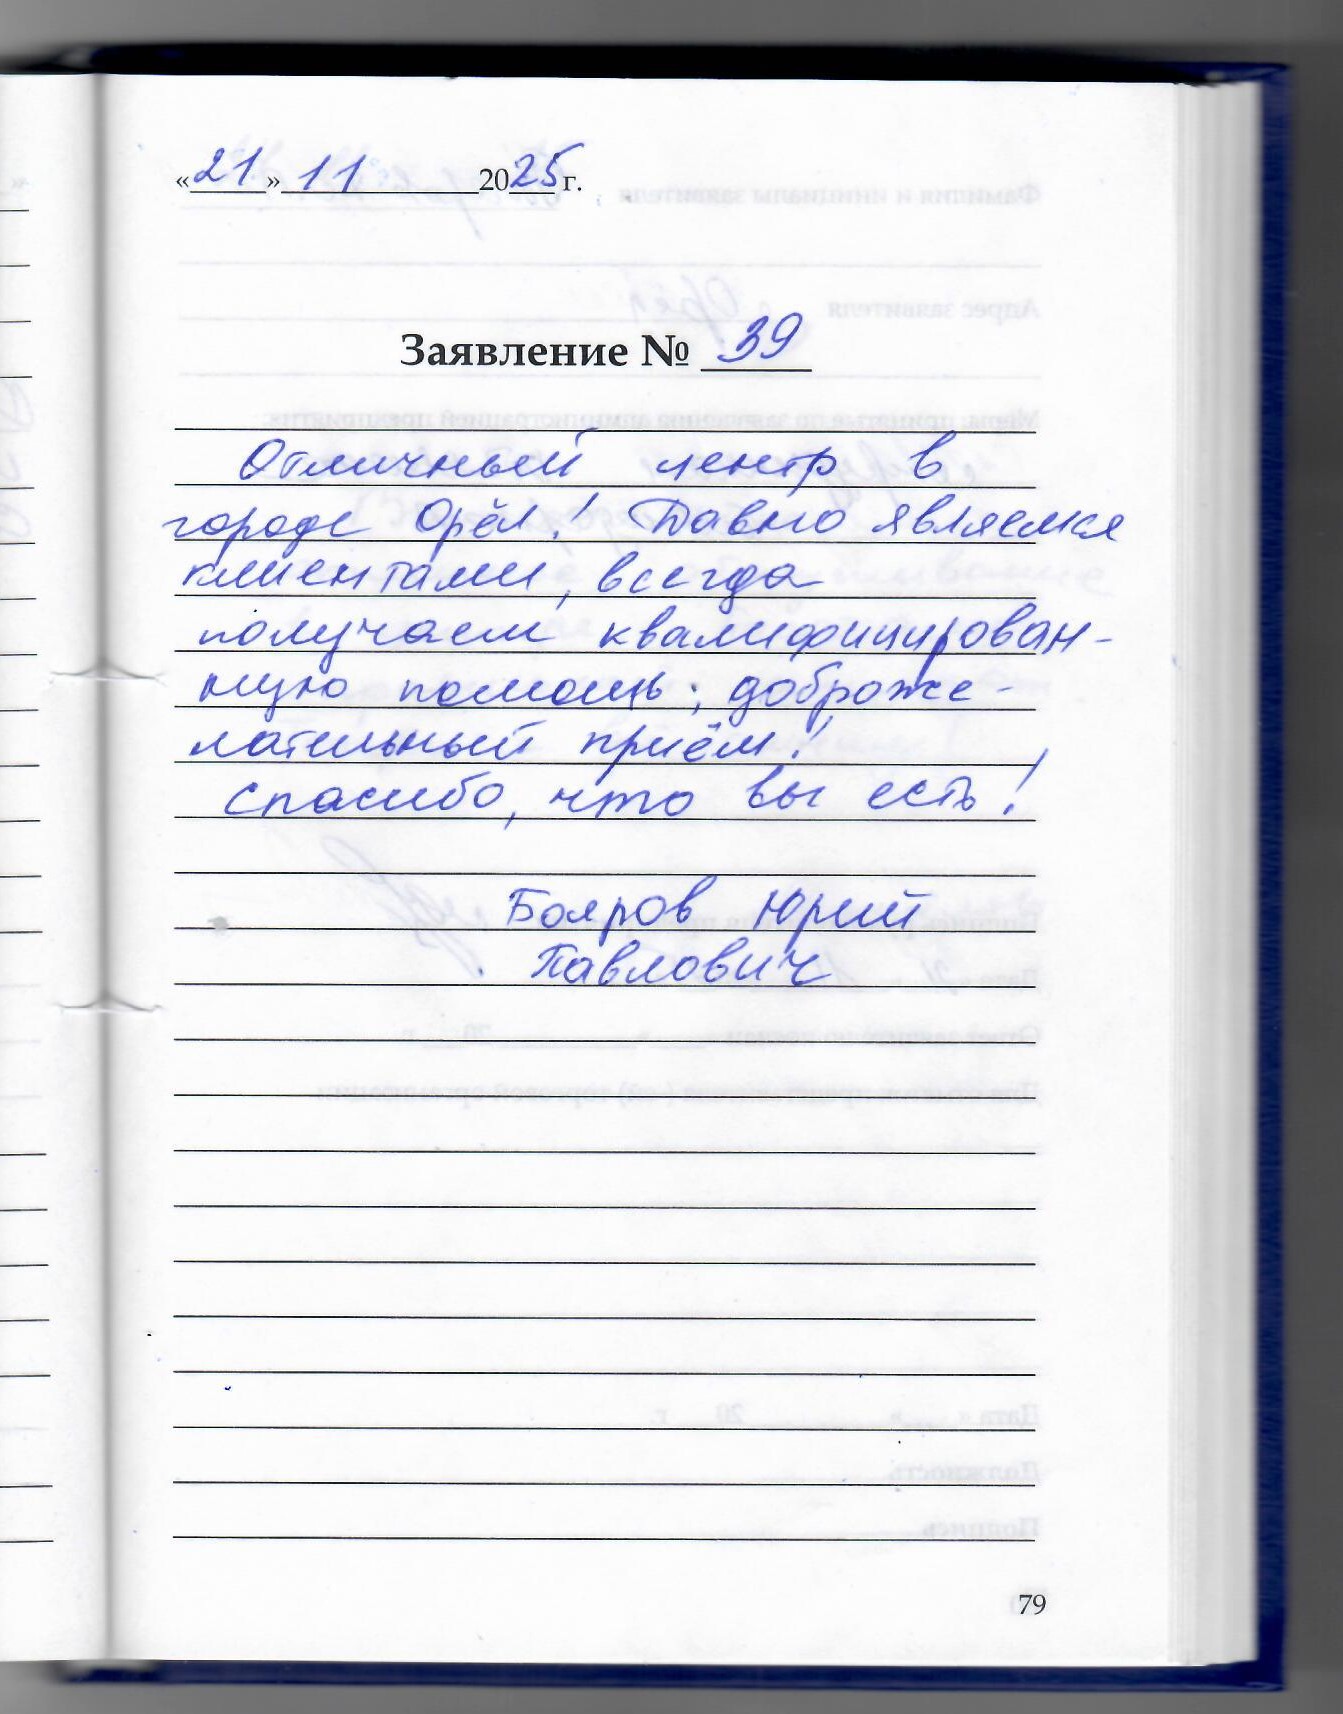 «21» 11 2025 г.
Заявление № 39
Отличный центр в
городе Орёл! Давно являемся
клиентами, всегда
получаем квалифицирован-
ную помощь, доброже-
лательный приём!
Спасибо, что вы есть!
Бояров Юрий
Павлович
79